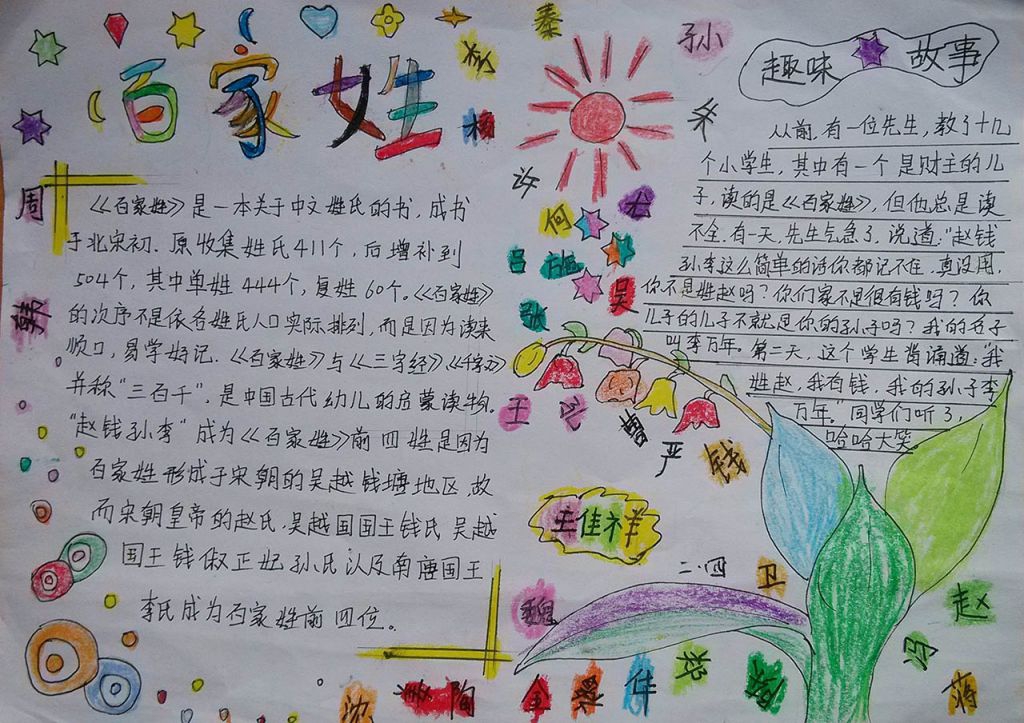 百家姓
《百家姓》是一本关于中文姓氏的书，成书
于北宋初．原收集姓氏411个，后增补到
504个，其中单姓444个，复姓60个。《百家姓》
的次序不是依各姓氏人口实际排列，而是因为读来
顺口，易学好记．《百家姓》与《三字经》《千字文》
并称"三百千"，是中国古代幼儿的启蒙读物．
"赵钱孙李"成为《百家姓》前四姓是因为
百家姓形成于宋朝的吴越钱塘地区，故
而宋朝皇帝的赵氏．吴越国国王钱氏 吴越
国王钱俶正妃孙氏以及南唐国王
李氏成为百家姓前四位。
趣味故事
从前，有一位先生，教了十几
个小学生，其中有一个是财主的儿
子，读的是《百家姓》，但他总是读
不全．有一天，先生气急了，说道："赵钱
孙李这么简单的话你都记不住，真没用，
你不是姓赵吗？你们家不是很有钱吗？你
儿子的儿子不就是你的孙子吗？我的名子
叫李万年。第二天，这个学生背诵道："我
姓赵，我有钱，我的孙子李
万年。"同学们听了，
哈哈大笑
秦
孙
朱
许
尤
何
吕
施
张
吴
周
韩
杨
王
曹
严
钱
王佳祥
二．四
卫
魏
赵
冯
蒋
沈
姜
陶
金